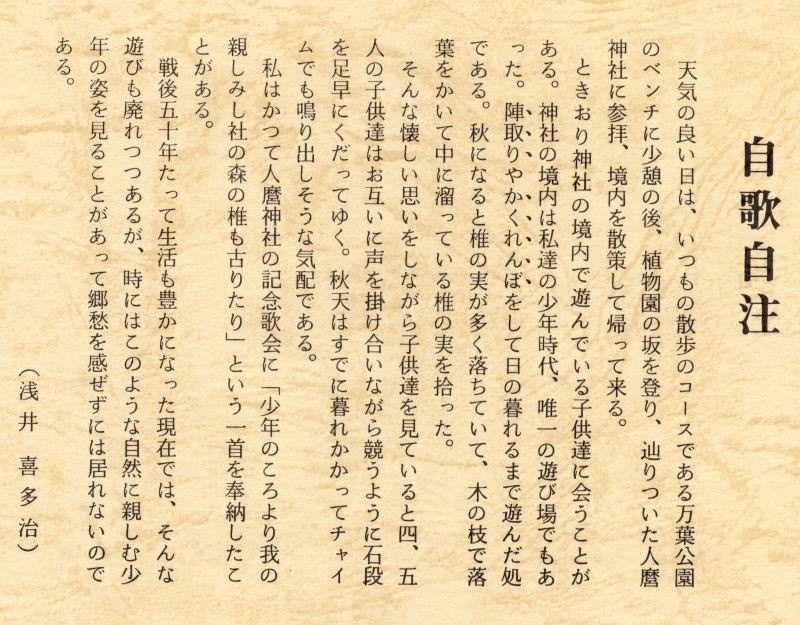 自歌自注
天気の良い日は、いつもの散歩のコースである万葉公園
のベンチに少憩の後、植物園の坂を登り、辿りついた人麿
神社に参拝、境内を散策して帰って来る。
ときおり神社の境内で遊んでいる子供達に会うことが
ある。神社の境内は私達の少年時代、唯一の遊び場でもあ
った。陣取りやかくれんぼをして日の暮れるまで遊んだ処
である。秋になると椎の実が多く落ちていて、木の枝で落
葉をかいて中に溜っている椎の実を拾った。
そんな懐しい思いをしながら子供達を見ていると四、五
人の子供達はお互いに声を掛け合いながら競うように石段
を足早にくだってゆく。秋天はすでに暮れかかってチャイ
ムでも鳴り出しそうな気配である。
私はかつて人麿神社の記念歌会に「少年のころより我の
親しみし社の森の椎も古りたり」という一首を奉納したこ
とがある。
戦後五十年たって生活も豊かになった現在では、そんな
遊びも廃れつつあるが、時にはこのような自然に親しむ少
年の姿を見ることがあって郷愁を感ぜずには居れないので
ある。
（浅井 喜多治）